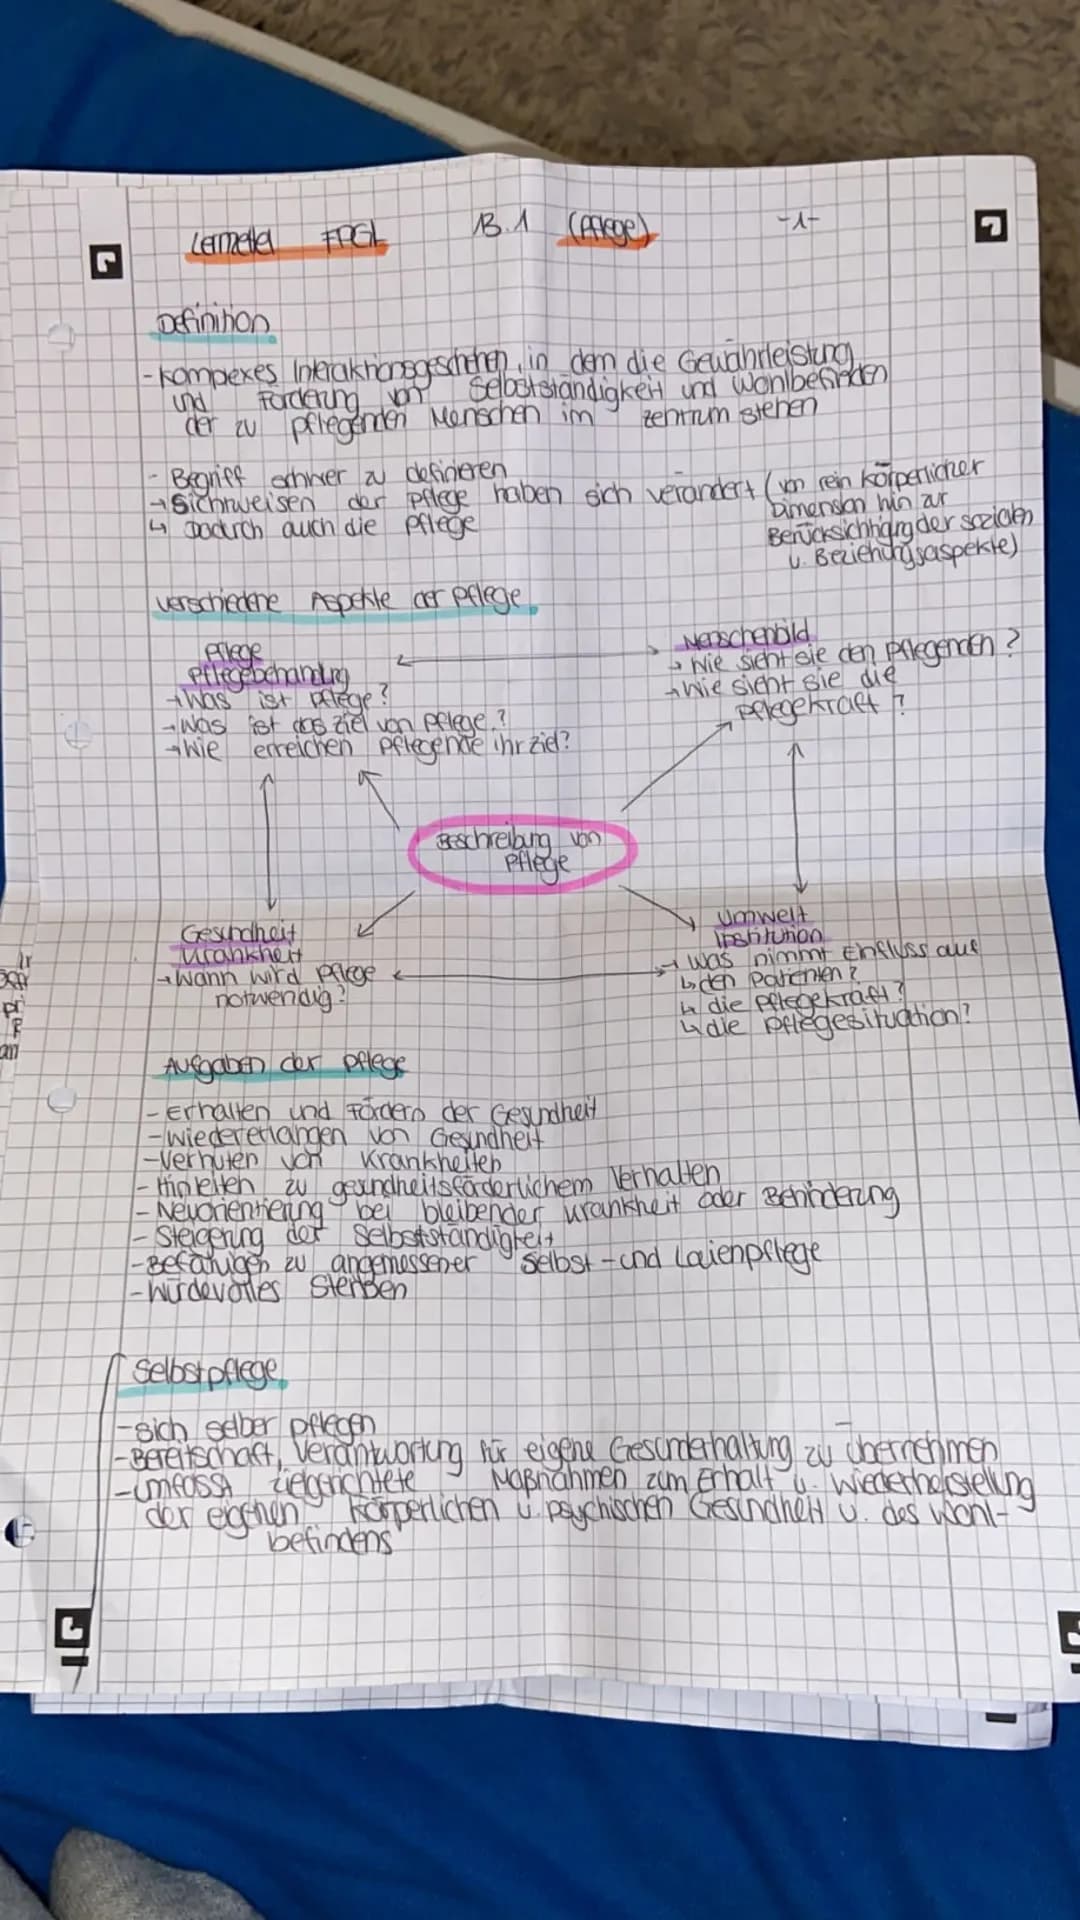 Lernzettel FPGL 13.1 (Pflege) -1-
Definition
- Kompexes Interaktionsgeschehen, in dem die Gewährleistung
und Förderung von Selbstständigkeit und Wohlbefinden
der zu pflegenden Menschen im Zentrum stehen
- Begriff schwer zu definieren
→ Sichtweisen der Pflege haben sich verändert (von rein körperlicher
Dimension hin zur
Berücksichtigung der sozialen
u. Beziehungsaspekte)
↳ Dadurch auch die Pflege
verschiedene Aspekte der Pflege
Pflege
Pflegebehandlung
→ Was ist Pflege?
→ Was ist das Ziel von Pflege?
→ Wie erreichen Pflegende ihr Ziel?
Menschenbild
→ Wie sieht sie den Pflegenden?
→ Wie sieht sie die
Pflegekraft?
Beschreibung von
Pflege
Gesundheit
Krankheit
→ Wann wird Pflege
notwendig?
Umwelt
Institution
→ Was nimmt Einfluss auf
↳ den Patienten?
↳ die Pflegekraft?
↳ die Pflegesituation?
Aufgaben der Pflege
- Erhalten und Fördern der Gesundheit
- Wiedererlangen von Gesundheit
- Verhüten von Krankheiten
- Hinleiten zu gesundheitsförderlichem Verhalten
- Neuorientierung bei bleibender Krankheit oder Behinderung
- Steigerung der Selbstständigkeit
- Befähigen zu angemessener Selbst- und Laienpflege
- würdevolles Sterben
Selbstpflege
- sich selber pflegen
- Bereitschaft, Verantwortung für eigene Gesunderhaltung zu übernehmen
- umfasst zielgerichtete Maßnahmen zum Erhalt u. Wiederherstellung
der eigenen körperlichen u. psychischen Gesundheit u. des Wohl-
befindens